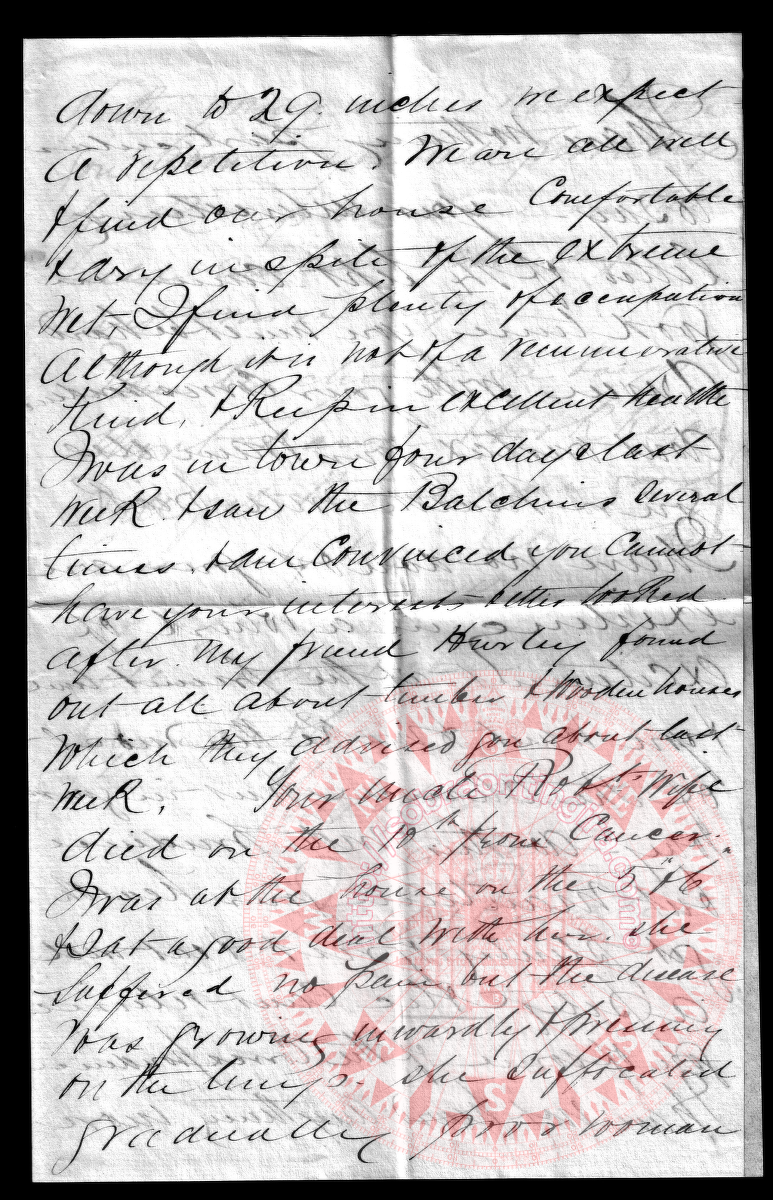 down to 29. inches we expect
a repetition. We are all well
& find our house Comfortable
& dry in spite of the extreme
wet, I find plenty of occupation
Although it is not of a remunerative
Kind, & Keep in excellent health
I was in town four days last
week & saw the Balchins several
times & am Convinced you Cannot
have your interests better looked
after. My friend Hurley found
out all about timber & Wooden houses
Which they advised you about last
week, Your Uncle Robts Wife
died on the 10th from Cancer.
I was at the house on the 5 & 6"
& Sat a good deal With her. she
Suffered no pain but the disease
was growing inwardly & pressing
on the lungs. she Suffocated
gradually poor woman